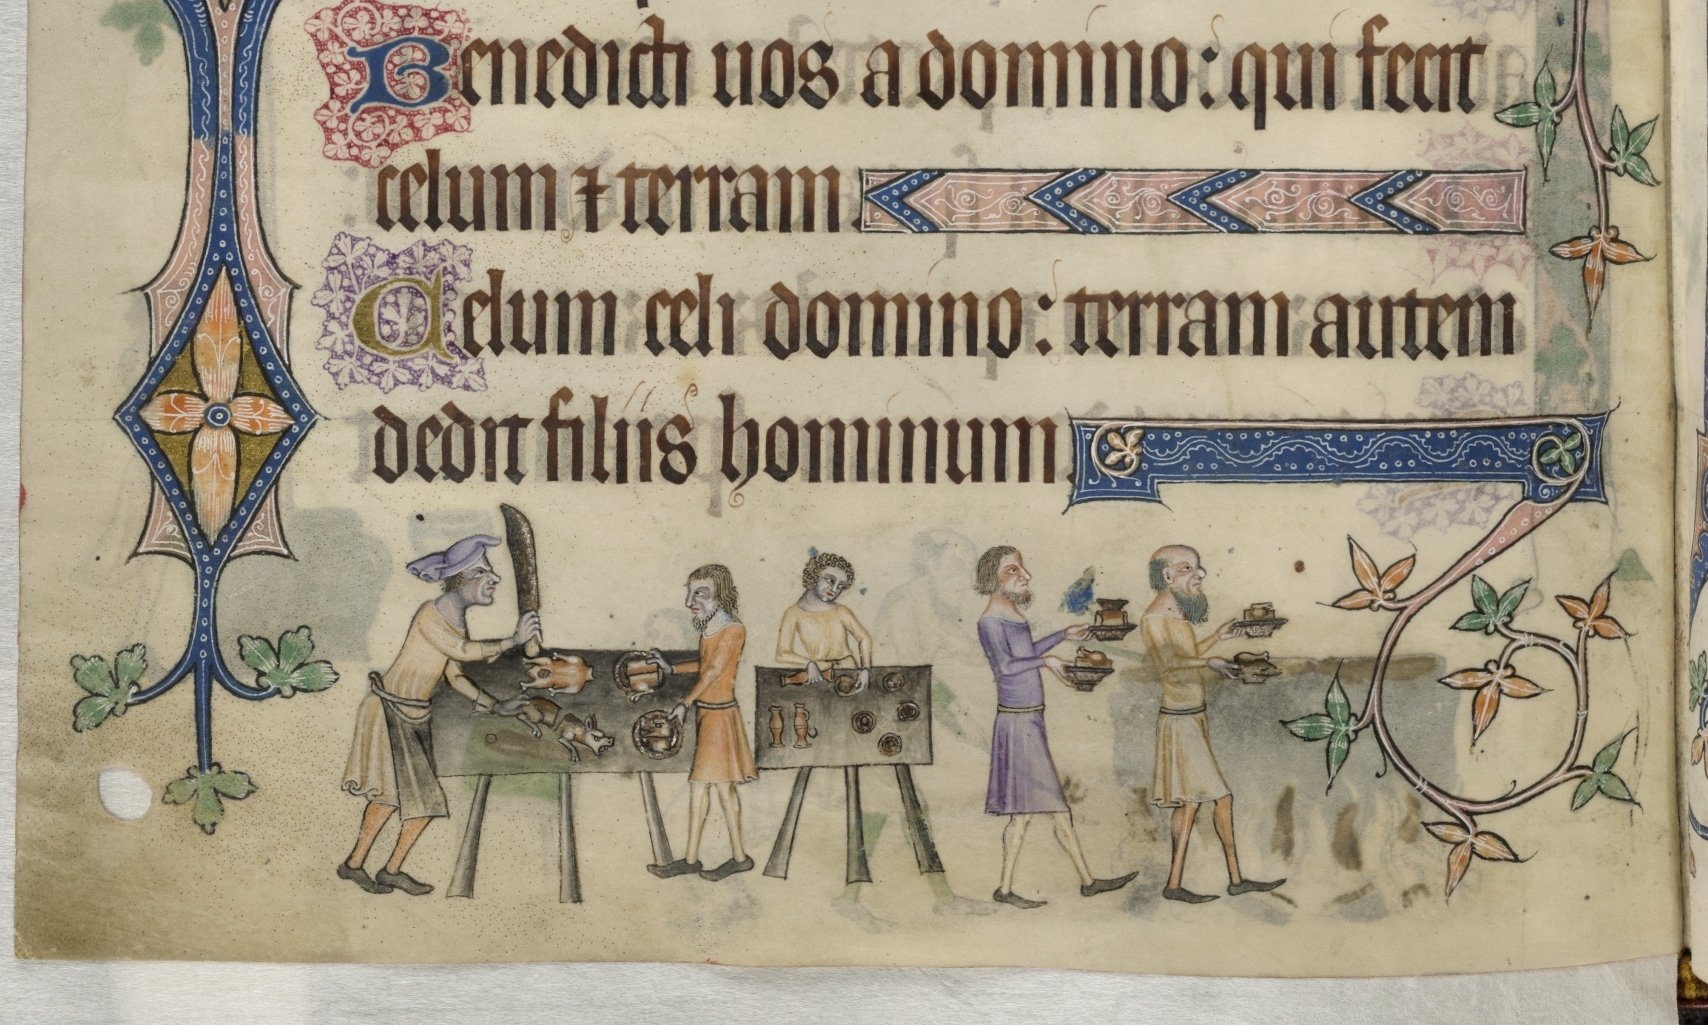 Benedicti uos a domino: qui fecit
celum ⁊ terram.
Celum celi domino: terram autem
dedit filiis hominum.